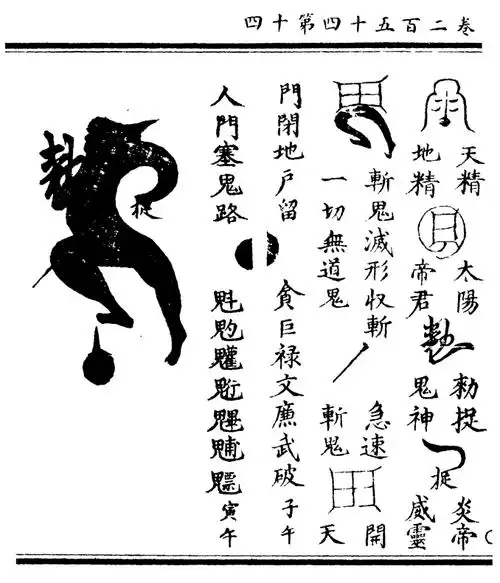 卷二百五十四第十四
天精
地精
太陽
帝君
勅捉
鬼神
捉
炎帝
威靈
斬鬼滅形収斬
一切無道鬼
急速
斬鬼
開
天
門閉地户留
貪巨禄文廉武破 子午
人門塞鬼路
魁 寅午
捉